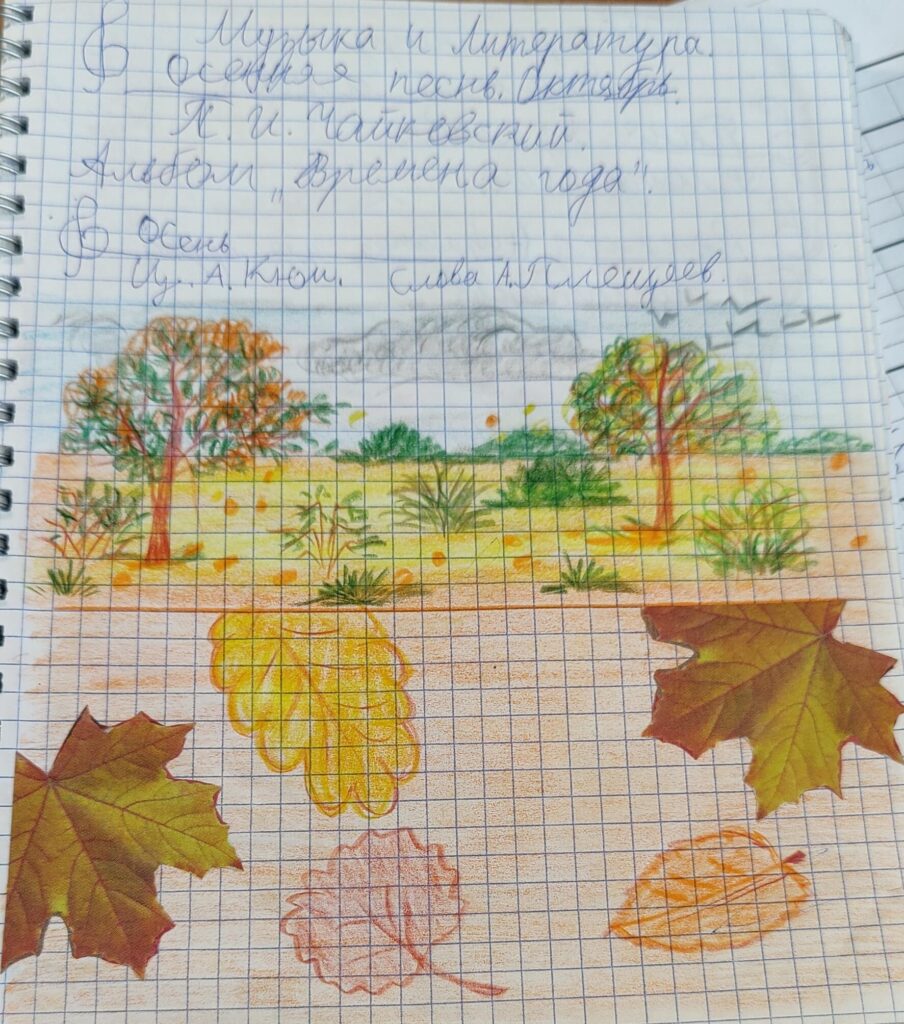 Музыка и Литература.
Осенняя песнь. Октябрь.
П. И. Чайковский.
Альбом „Времена года".
Осень
Цз. А. Кюи. Слова А. Плещеев.